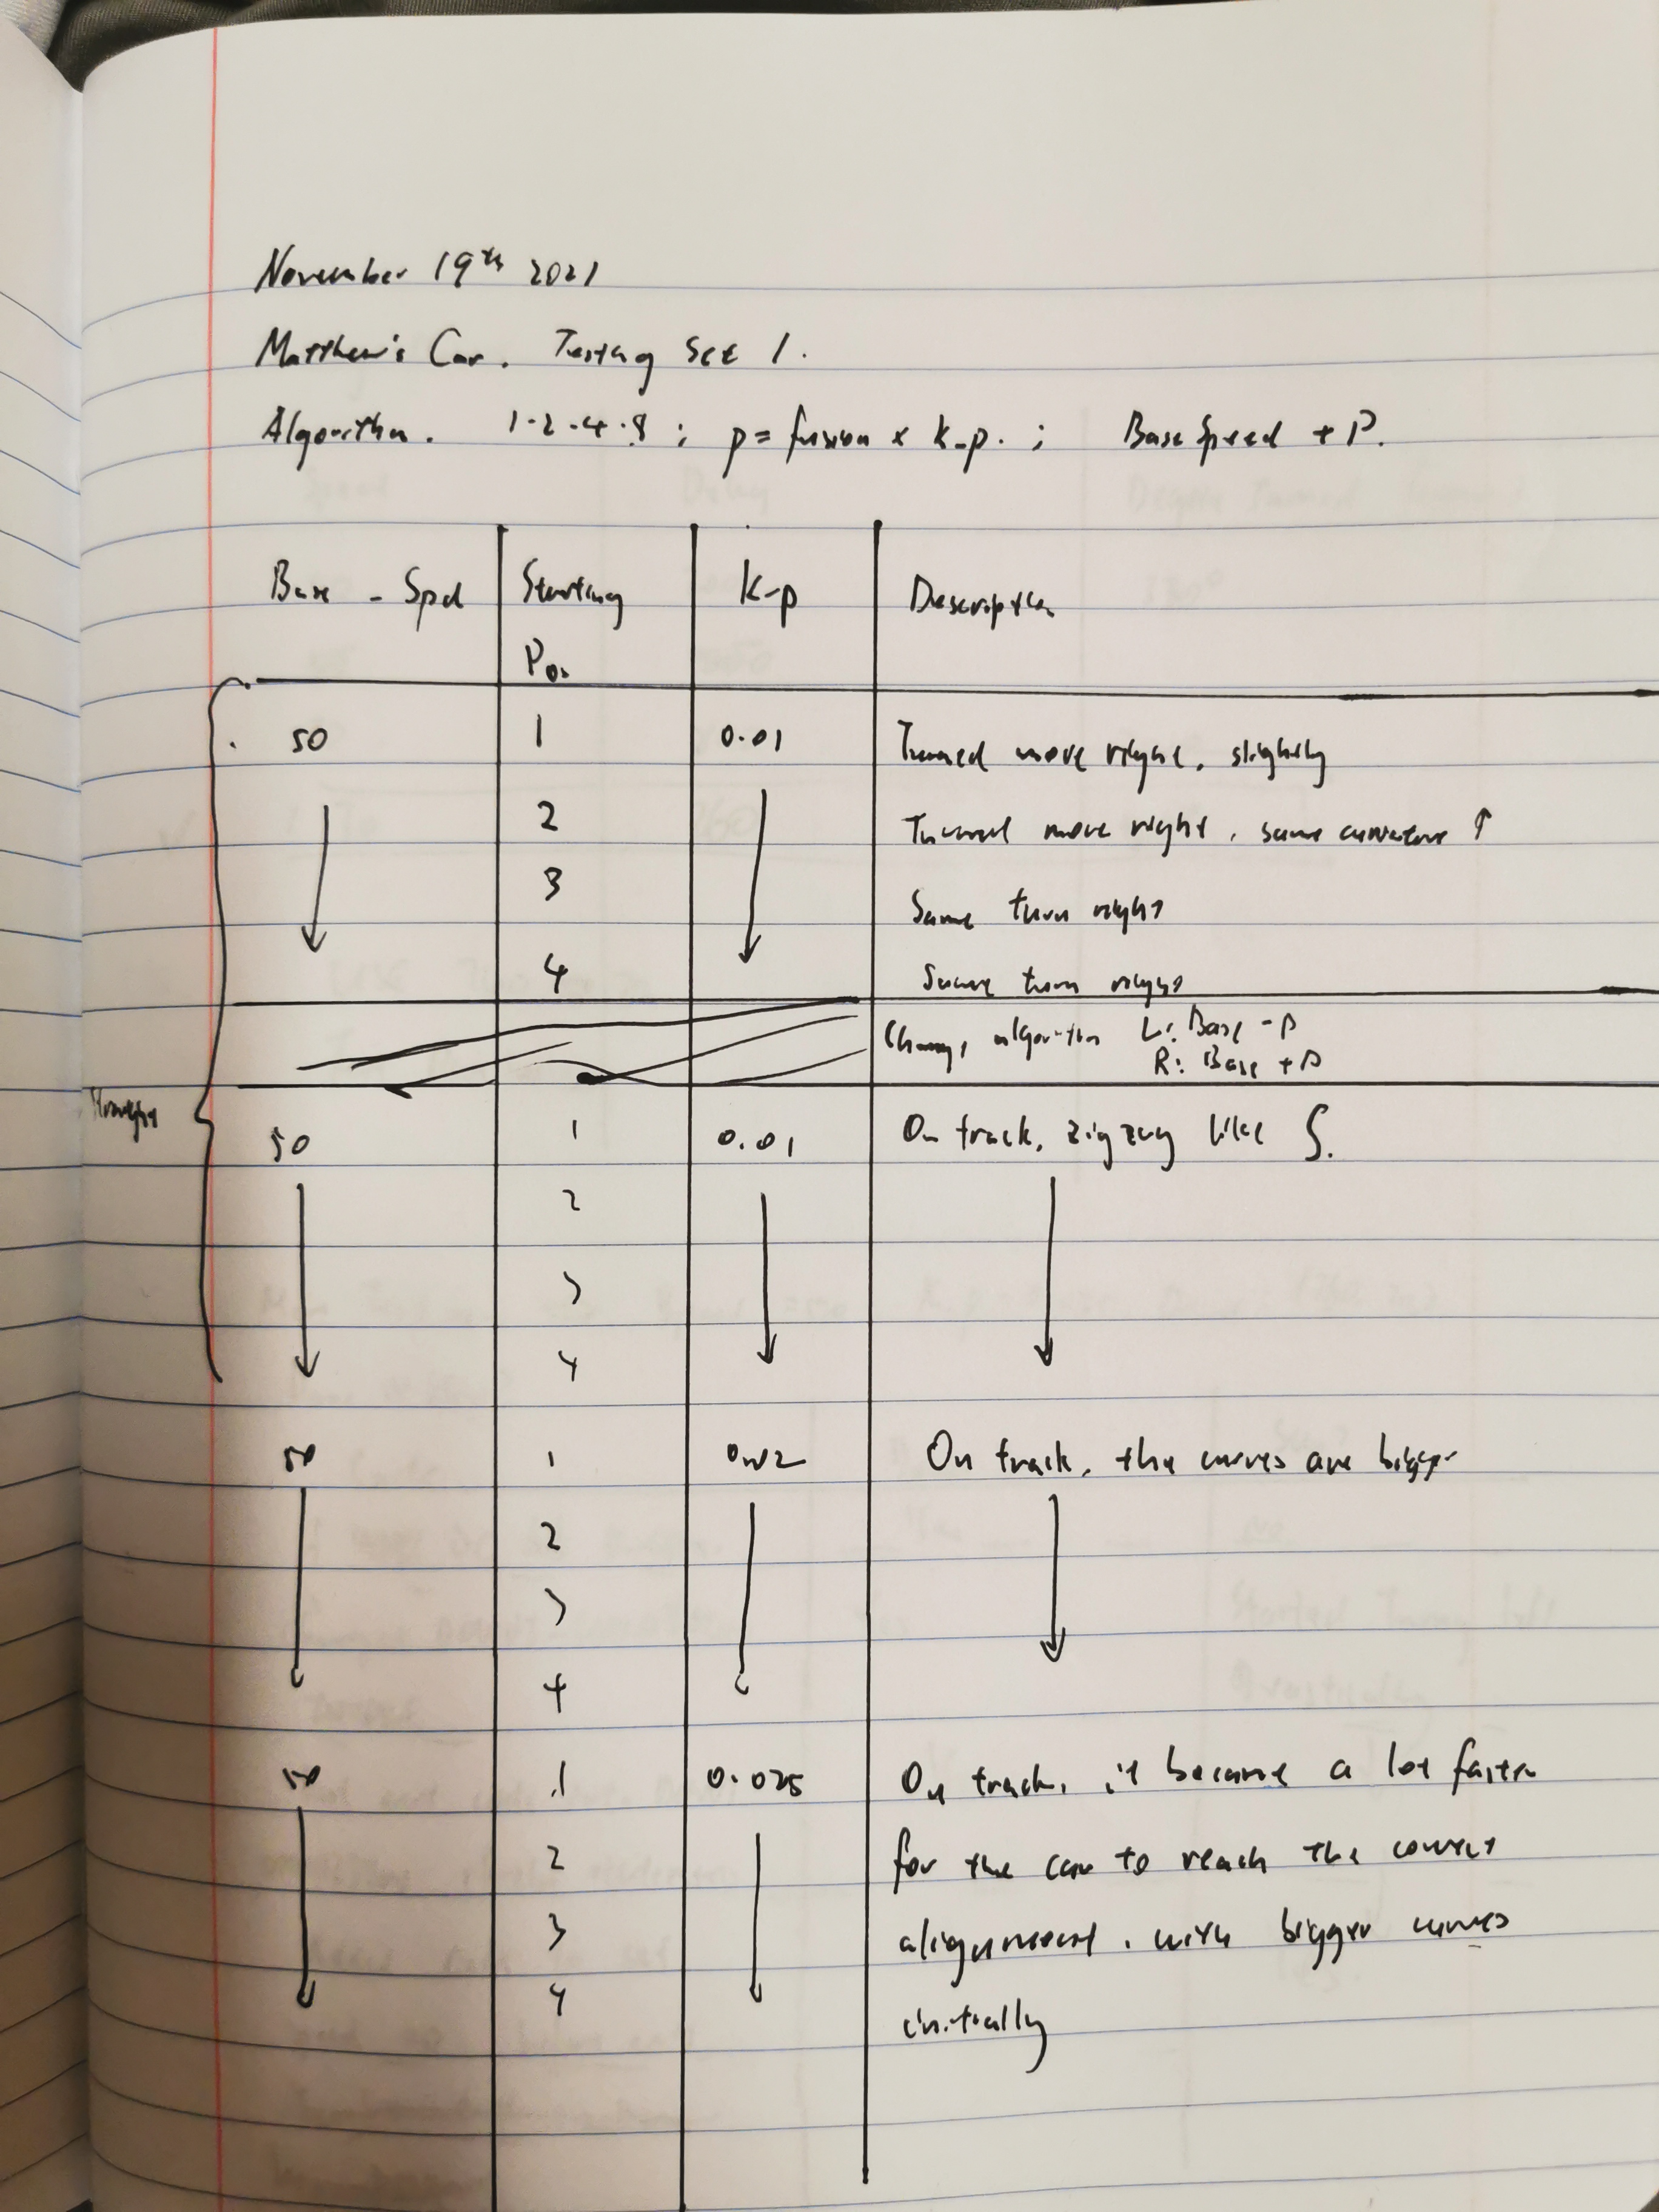 November 19th 2021
Matthew's Car. Testing Set 1.
Algorithm. 1-2-4-8 ; p = fusion x k-p. ; Base Speed + P.
Base - Spd Starting K-p Description
Pos
50 1 0.01 Turned move right, slightly
2 Turned move right, same curvature ↑
3 Same turn right
4 Same turn right
Change algorithm L: Base - p
R: Base + p
50 1 0.01 On track, zigzag like ∫.
2
3
4
50 1 0.02 On track, the curves are bigger
2
3
4
50 1 0.025 On track, it became a lot faster
2 for the car to reach the correct
3 alignment, with bigger curves
4 initially